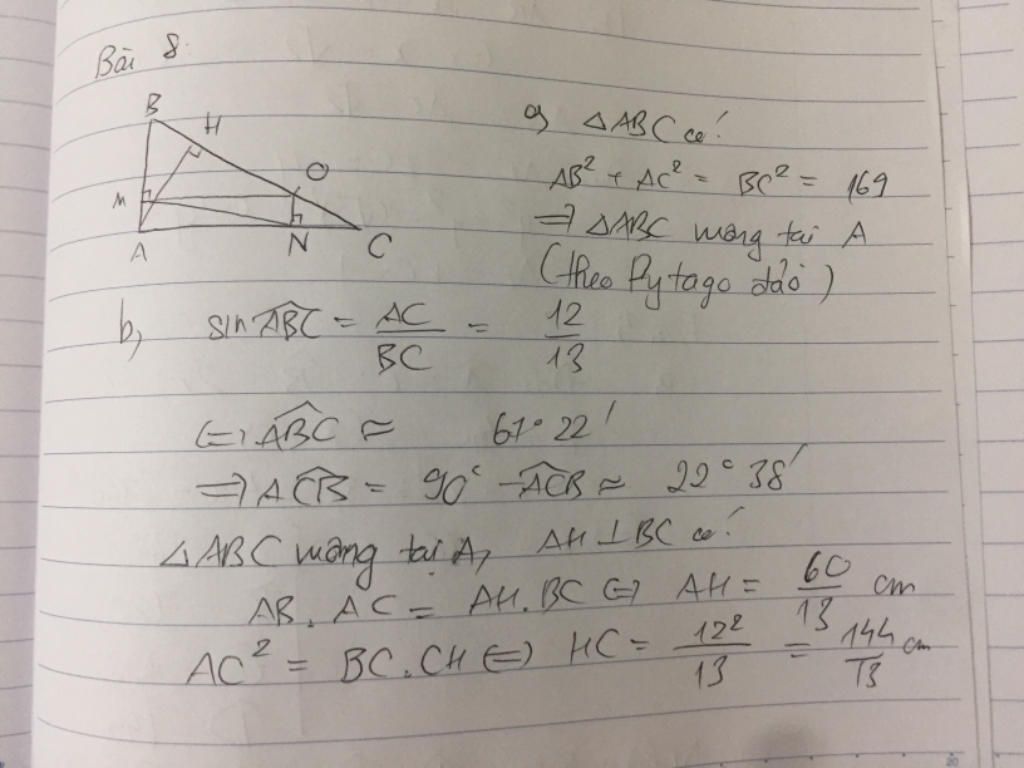 Bài 8:
B
H
O
M
A
N
C
a, △ABC có:
AB² + AC² = BC² = 169
=> △ABC vuông tại A
(theo Pytago đảo)
b, sin ABC = AC/BC = 12/13
<=> ABC ≈ 67° 22'
=> ACB = 90° - ACB ≈ 22° 38'
△ABC vuông tại A, AH ⊥ BC có:
AB . AC = AH . BC <=> AH = 60/13 cm
AC² = BC . CH <=> HC = 12²/13 = 144/13 cm